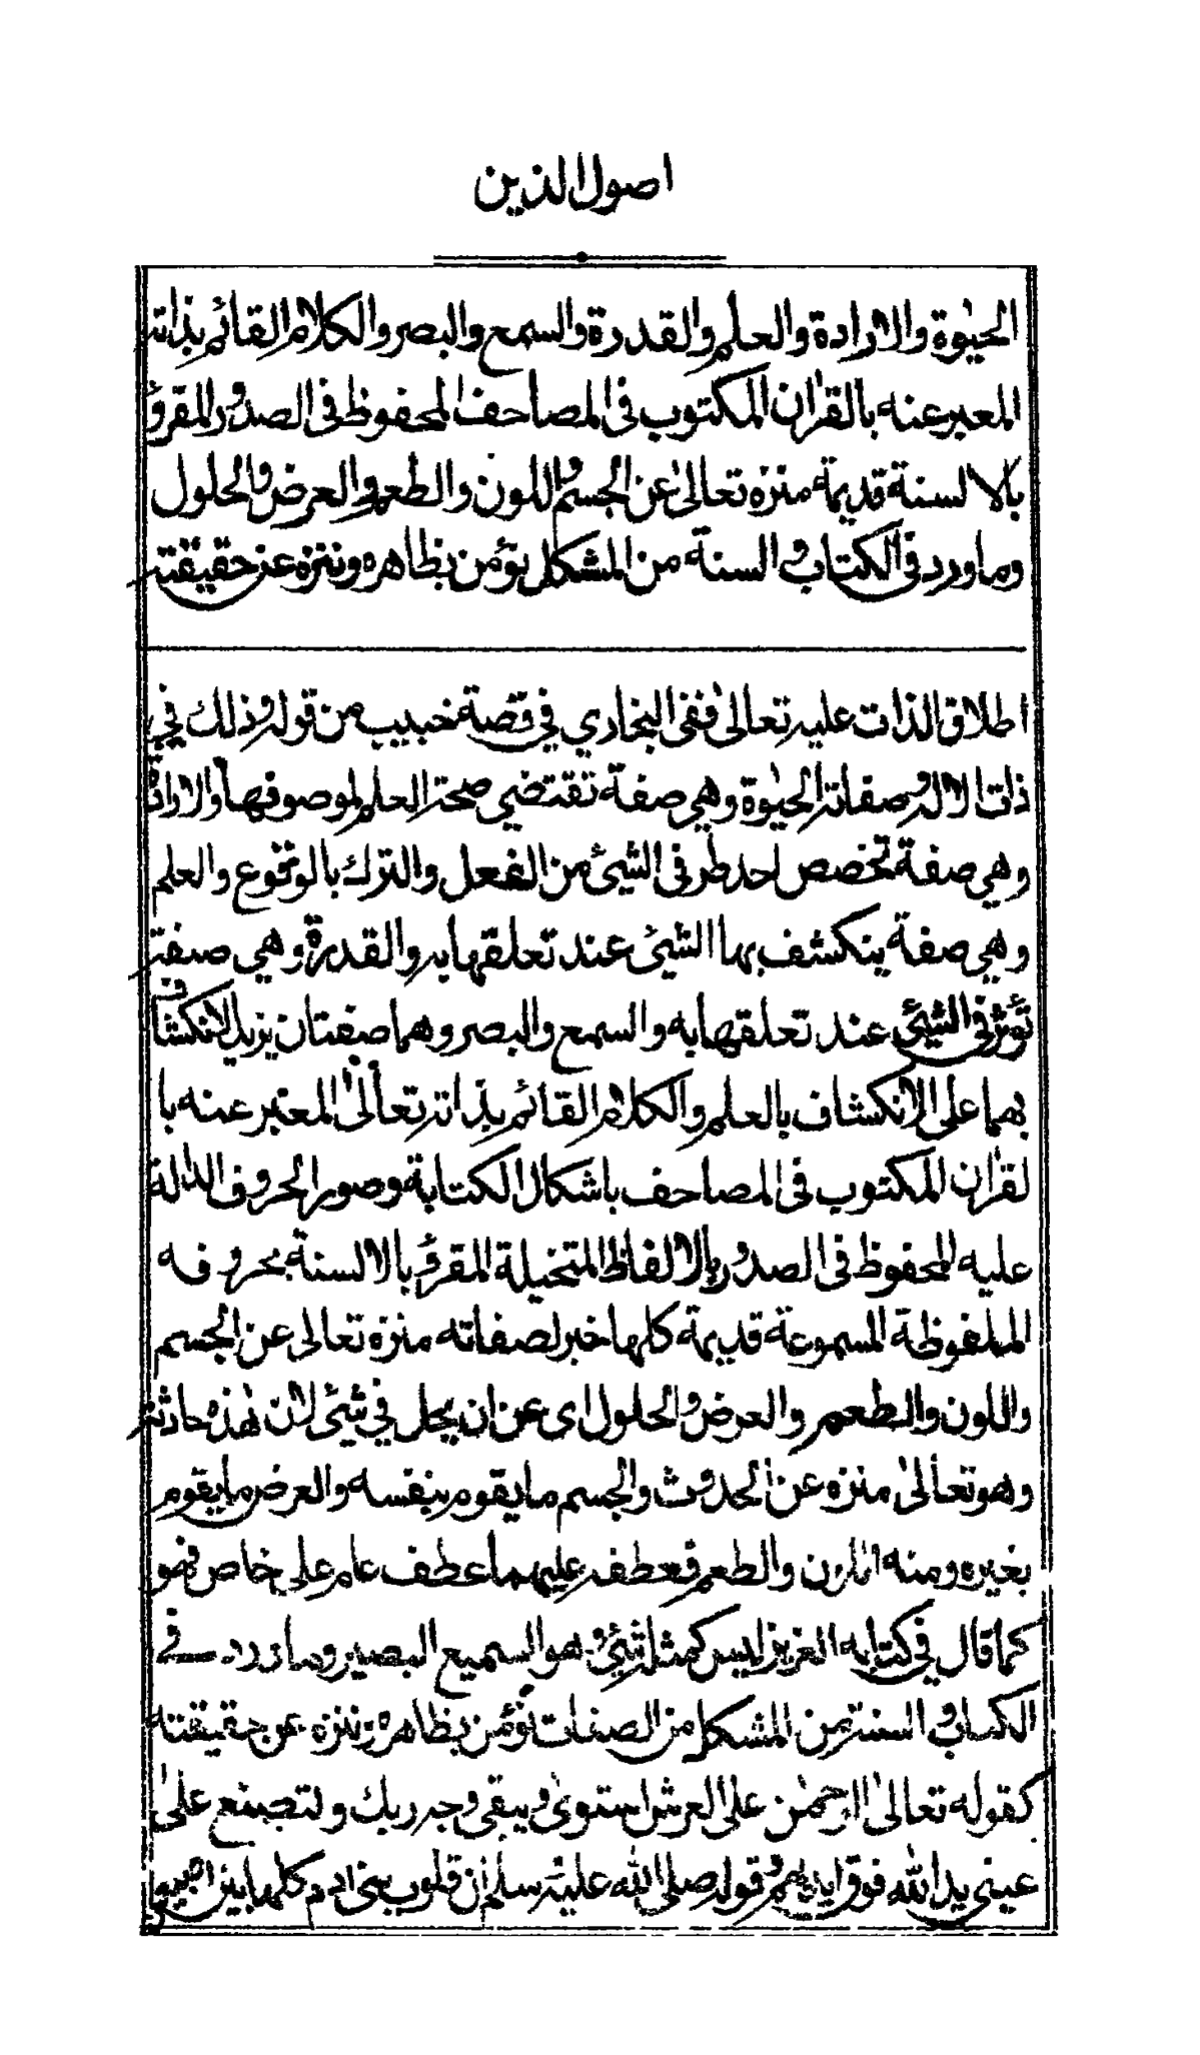 اصول الدين
الحيٰوة والارادة والعلم والقدرة والسمع والبصر والكلام القائم بذاته
المعبر عنه بالقرآن المكتوب فى المصاحف المحفوظ فى الصدور المقرؤ
بالالسنة قديمة منزه تعالىٰ عن الجسم واللون والطعم والعرض والحلول
وما ورد فى الكتاب والسنة من المشكل نؤمن بظاهره وننزه عن حقيقته
اطلاق الذات عليه تعالىٰ ففى البخاري في قصة خبيب من قوله وذلك في
ذات الاله وصفاته الحيٰوة وهي صفة تقتضي صحة العلم لموصوفها والارادة
وهي صفة تخصص احد طرفى الشيئ من الفعل والترك بالوقوع والعلم
وهي صفة ينكشف بها الشيئ عند تعلقها به والقدرة وهي صفة
تؤثر فى الشيئ عند تعلقها به والسمع والبصر وهما صفتان يزيد الانكشاف
بهما على الانكشاف بالعلم والكلام القائم بذاته تعالىٰ المعبر عنه با
لقرآن المكتوب فى المصاحف باشكال الكتابة وصور الحروف الدالة
عليه المحفوظ فى الصدور بالالفاظ المتخيلة المقرؤ بالالسنة بحروفه
الملفوظة المسموعة قديمة كلها خبر لصفاته منزه تعالى عن الجسم
واللون والطعم والعرض والحلول اى عن ان يحل في شيئ لان هٰذه حادثة
وهو تعالىٰ منزه عن الحدوث والجسم ما يقوم بنفسه والعرض ما يقوم
بغيره ومنه اللون والطعم فعطفه عليهما عطف عام على خاص فهو
كما قال في كتابه العزيز ليس كمثله شيئ وهو السميع البصير وما ورد في
الكتاب والسنة من المشكل من الصفات نؤمن بظاهره وننزه عن حقيقته
كقوله تعالىٰ الرحمٰن على العرش استوىٰ ويبقى وجه ربك ولتصنع علىٰ
عينى يد الله فوق ايديهم وقوله صلى الله عليه وسلم ان قلوب بنى ادم كلها بين اصبعين